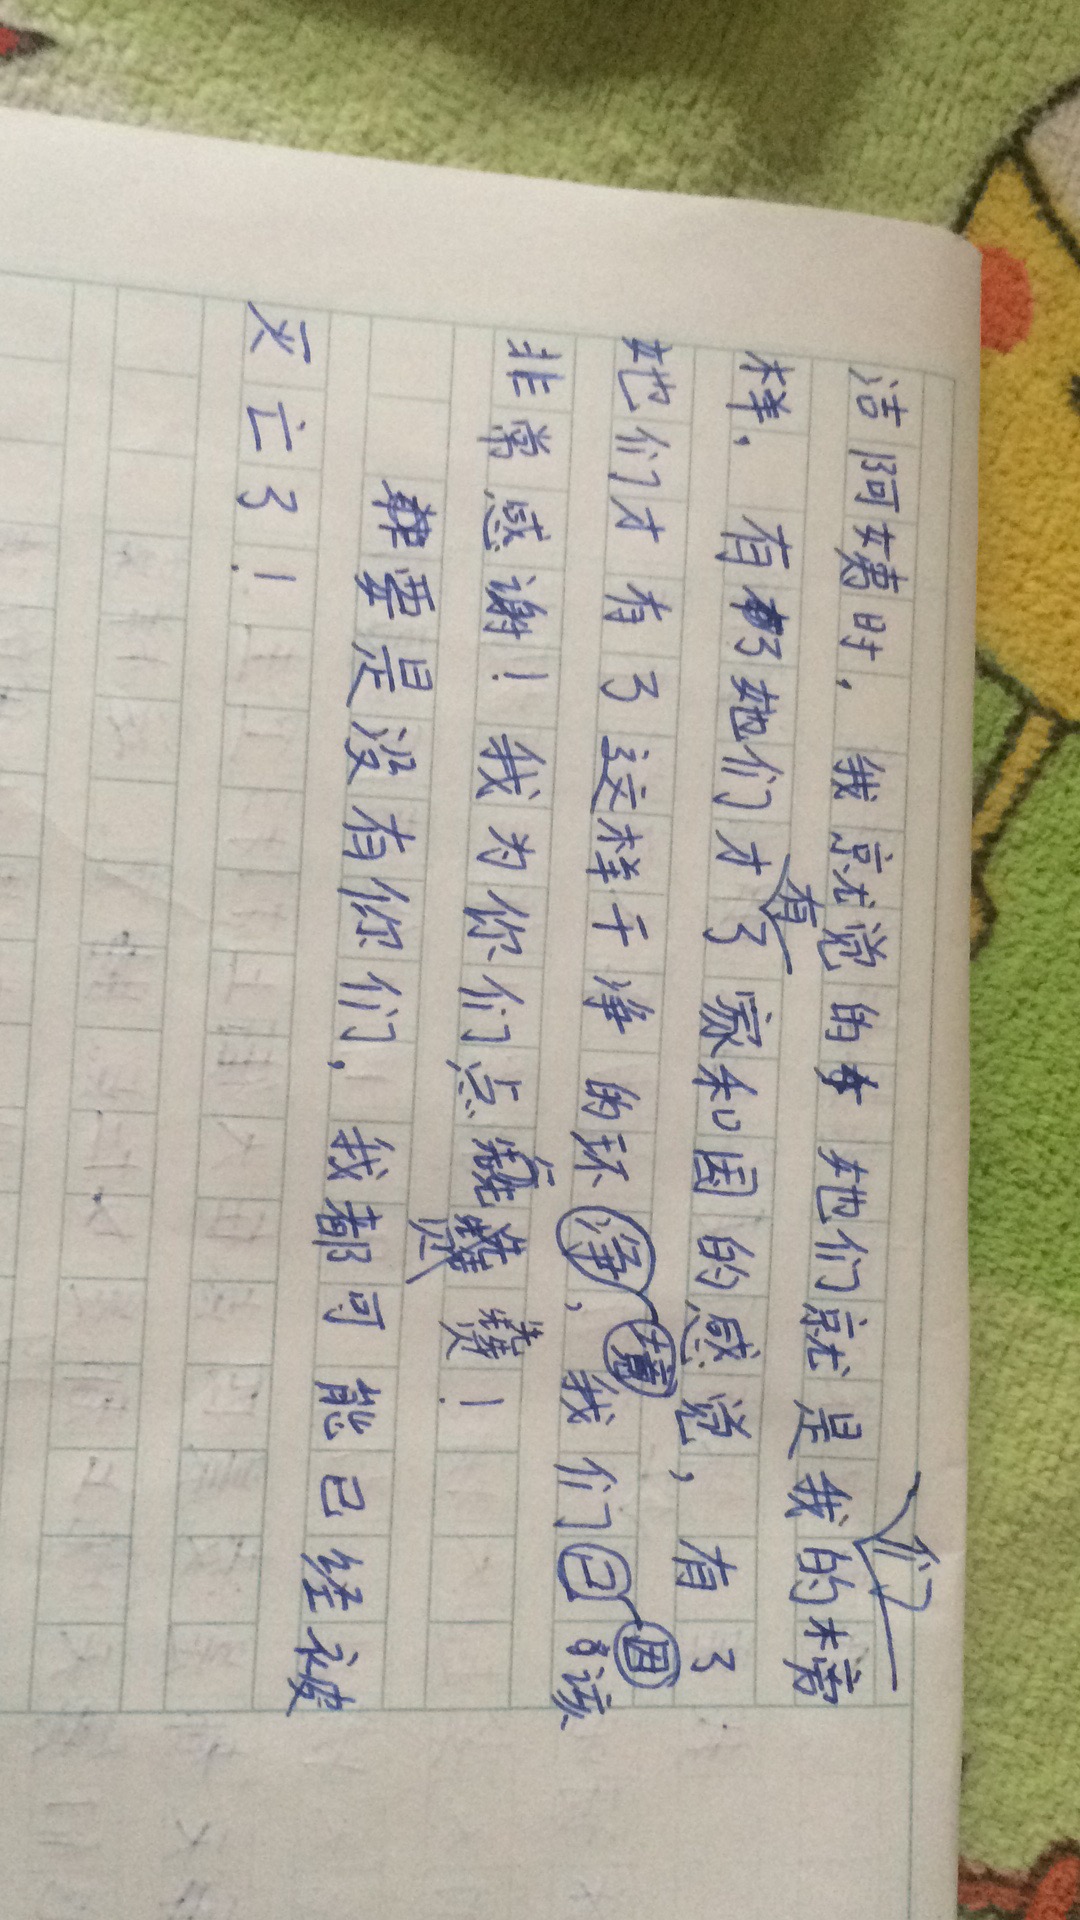 洁阿姨时，我就觉的她们就是我们的榜
样，有了她们才有了家和国的感觉，有了
她们才有了这样干净的环境，我们因该
非常感谢！我为你们点赞！
要是没有你们，我都可能已经被
灭亡了！